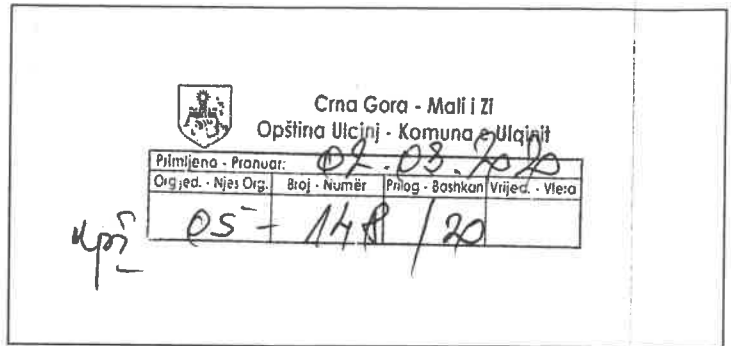 Crna Gora - Mali i Zi
Opština Ulcinj - Komuna e Ulqinit
Primljeno - Pranuar: 02.03.2020
Org jed. - Njes Org. Broj - Numër Prilog - Bashkan Vrijed. - Vlera
05 - 148 / 20